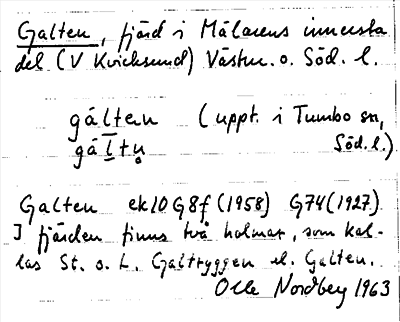 Galten, fjärd i Mälarens innersta
del (V Kvicksund) Västm. o. Söd. l.
gálten (uppt. i Tumbo sn,
gáltn̥ Söd. l.)
Galten ek 10G8f (1958) G74 (1927)
I fjärden finns två holmar, som kal-
las St. o. L. Galtryggen el. Galten.
Olle Nordberg 1963